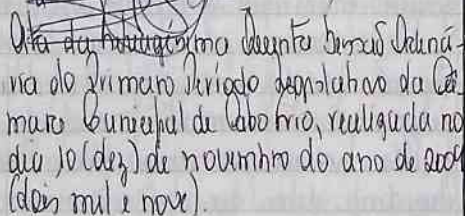 Ata da
Sessão Ordiná-
ria do Primeiro Período Legislativo da Câ-
mara Municipal de Cabo Frio, realizada no
dia 10 (dez) de novembro do ano de 2009
(dois mil e nove).